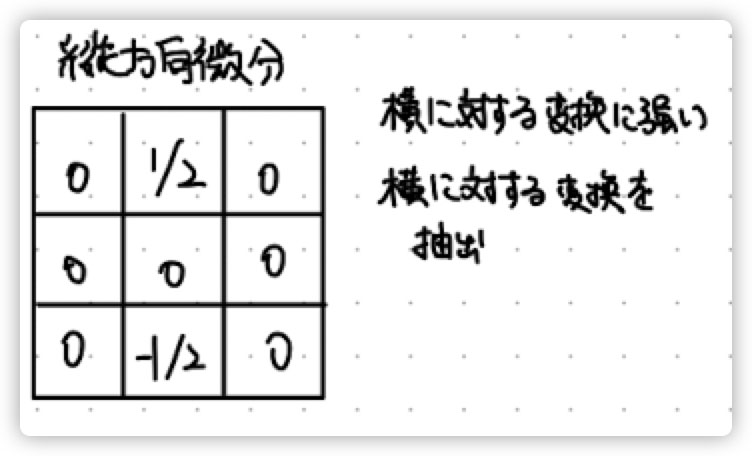 縦方向微分
0 1/2 0
0 0 0
0 -1/2 0
横に対する変換に強い
横に対する変換を
抽出